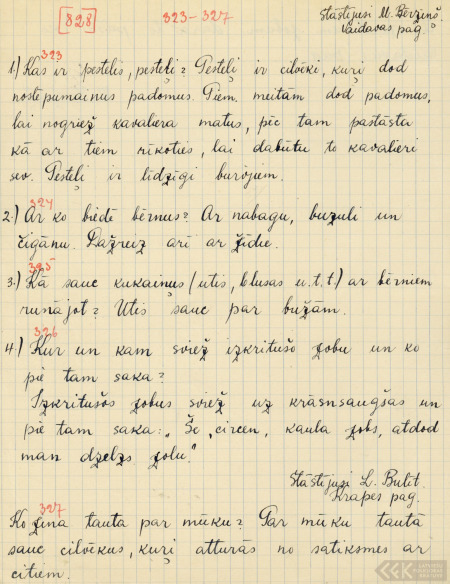 [828]
323-327
Stāstījusi M. Bērziņš
Vaidavas pag.
323
1.) Kas ir pesteļis, pesteļi? Pesteļi ir cilvēki, kuŗi dod
noslēpumainus padomus. Piem. meitām dod padomus,
lai nogriež kavaliera matus, pēc tam pastāsta
kā ar tiem rīkoties, lai dabūtu to kavalieri
sev. Pesteļi ir līdzīgi burvjiem.
324
2.) Ar ko biedē bērnus? Ar nabagu, buzuli un
čigānu. Dažreiz arī ar žīdu.
325
3.) Kā sauc kukaiņus (utis, blusas u.t.t.) ar bērniem
runājot? Utis sauc par bužām.
326
4.) Kur un kam sviež izkritušo zobu un ko
pie tam saka?
Izkritušos zobus sviež uz krāsnsaugšas un
pie tam saka: „Še, circen, kaula zobs, atdod
man dzelzs zobu."
Stāstījusi L. Bulit.
Krapes pag.
327
Ko zina tauta par mūku? Par mūku tautā
sauc cilvēkus, kuŗi atturās no satiksmes ar
citiem.
LFK
LATVIEŠU
FOLKLORAS
KRĀTUVE